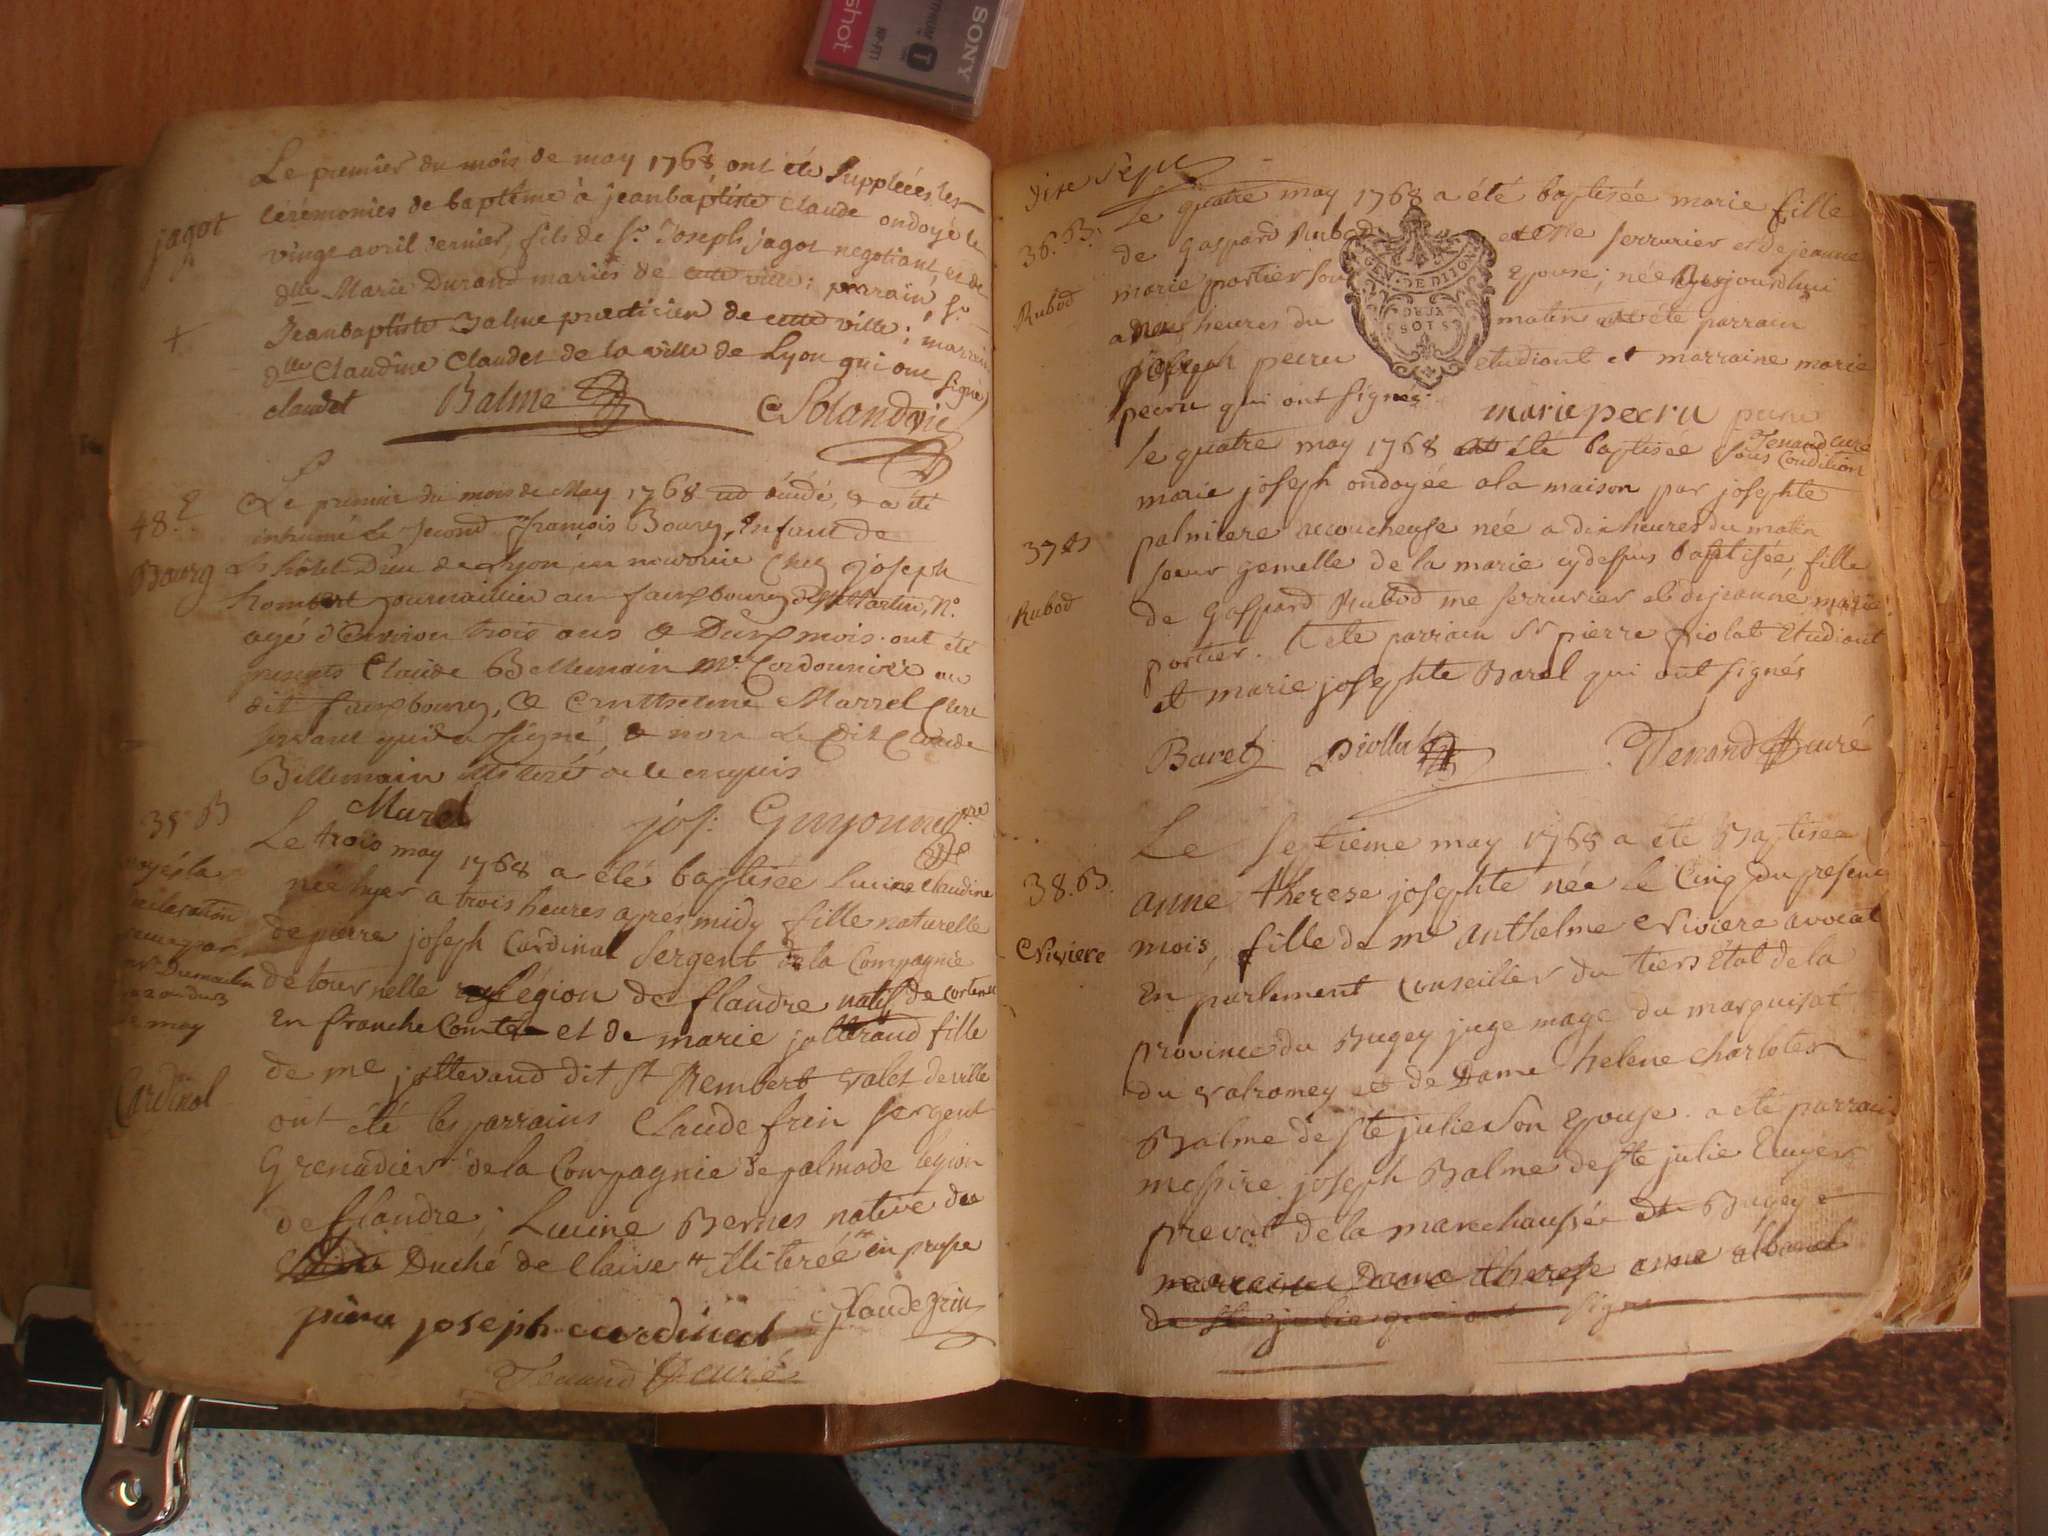 SONY
shot
Le premier du mois de may 1768, ont été Suppléées les
jagot
cérémonies de baptême à jeanbaptiste claude ondoyé le
vingt avril dernier, fils de Sr. Joseph jagot negotiant, et de
dlle Marie Durand mariés de cette ville; parrain, Sr.
Jeanbaptiste Balme practicien de cette ville; marraine
dlle Claudine Claudet de la ville de Lyon qui ont signé
claudet Balme
48.
Bourg
Le premier du mois de May 1768 est décédé, & a été
inhumé Le Second françois Bourg, Enfant de
L'hôtel Dieu de Lyon en nourrice Chez joseph
agé d'Environ trois ans & Deux mois. ont été
presents Claude Bellemain Me. Cordonnier au
dit fauxbourg, & Anthelme Marrel Clerc
servant qui a signé, & non Le dit Claude
Billemain illiteré de ce enquis
Marel jos. Guyonnet
35 B
Cardinal
Le trois may 1768 a été baptisée Lucine Claudine
née hyer a trois heures après midy fille naturelle
de pierre joseph Cardinal Sergent de la Compagnie
de tournelle Légion de flandre natif de
En franche Comté et de marie jottevand fille
de me jottevand dit st Rembert valet de ville
ont été les parrains Claude frin sergent
Grenadier de la Compagnie de palmade legion
de flandre; Lucine Bernes native du
Duché de Claive illiterée
pierre joseph cardinal Claude frin
Tenand curé
dixe Sept
36. B.
Rubod
Le quatre may 1768 a été baptisée marie fille
de Gaspard Rubod me serrurier et de jeanne
marie portier son Epouse; née aujourdhui
a neuf heures du matin a été parrain
joseph pecru etudiant et marraine marie
pecru qui ont signés. marie pecru pecru
GEN. DE DIJON
Tenand curé
37 B
Rubod
le quatre may 1768 a été baptisée sous Condition
marie joseph ondoyée a la maison par josephte
palmiere accoucheuse née a dix heures du matin
soeur gemelle de la marie cydessus baptisée, fille
de Gaspard Rubod me serrurier et de jeanne marie
portier. a été parrain Sr pierre piolat Etudiant
et marie josephte Baret qui ont signés
Baret piollat Tenand curé
38. B.
Niviere
Le septieme may 1768 a été Baptisée
anne therese josephte née Le Cinq du present
mois, fille de me anthelme Niviere avocat
En parlement Conseiller du tiers état de la
province du Bugey juge mage du marquisat
du valromey et de Dame helene charlotte
Balme de ste julie Son Epouse. a été parrain
messire joseph Balme de Ste julie Ecuyer
prevot de la marechaussée du Bugey et
marraine Dame therese anne albanel
de Ste julie qui ont signé